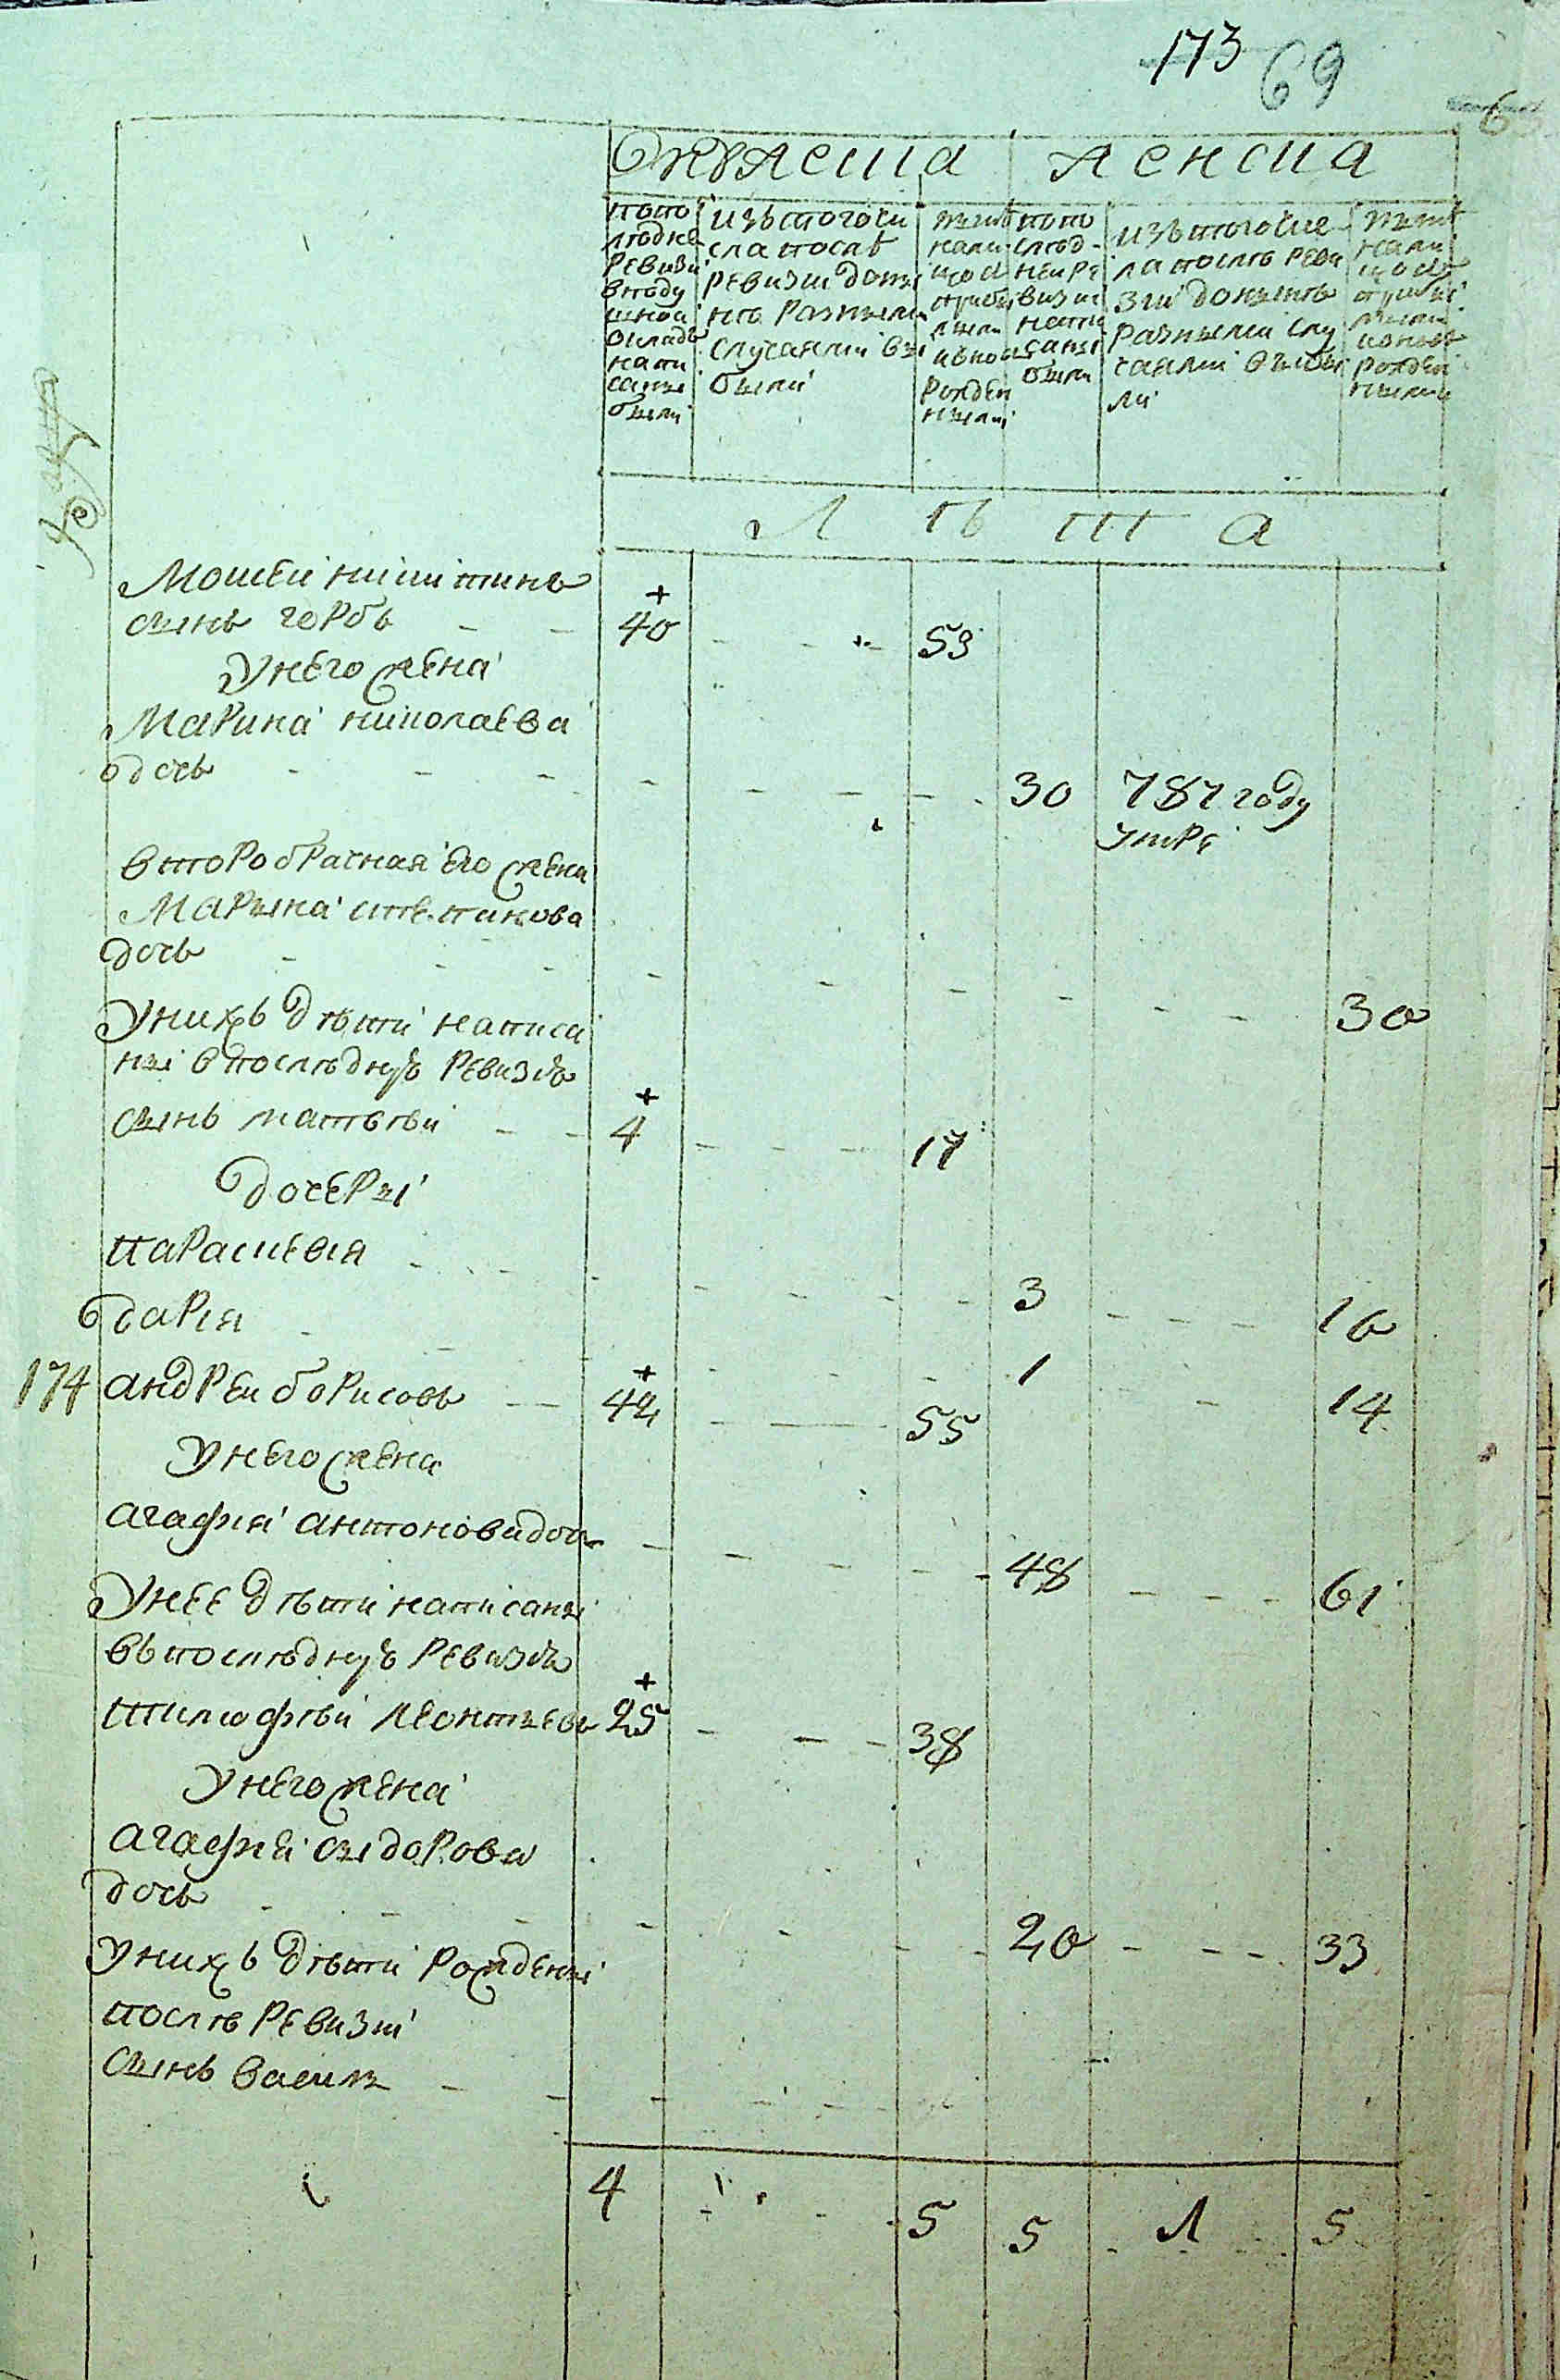 173 69
Мужеска женска
попо
следней
ревизии
вподу
шной
окладъ
напи
саны
были
изътогочи
сла послѣ
ревизии доны
нѣ разными
случаями вы
были
нынѣ
налицо
съ
прибы
лыми
ивновь
рожден
ными
попо
след
ней ре
визии
напи
саны
были
изътогочис
ла послѣ реви
зии донынѣ
разными слу
чаями выбы
ли
нынѣ
нали
цо съ
прибы
лыми
ивновь
рожден
ными
Л ѣ т а
Мосей никитинъ
сынъ горбъ 40 53
Унего жена
Марина николаева
дочь 30 787 году
умре
второбрачная его жена
Марына степанова
дочь 30
Унихъ дѣти написа
ны впослѣднуъ ревизию
сынъ матвѣй 4 17
Дочеры
Параскевия 3 16
Дария 1 14
174 андрей борисовъ 42 55
Унего жена
агафия антонова дочь 48 61
Унее дѣти написаны
въпослѣднуъ ревизию
тимофѣй леонтьевъ 25 38
Унего жена
агафия сыдорова
дочь 20 33
Унихъ дѣти рождены
послѣ ревизии
сынъ василь
4 5 5 1 5